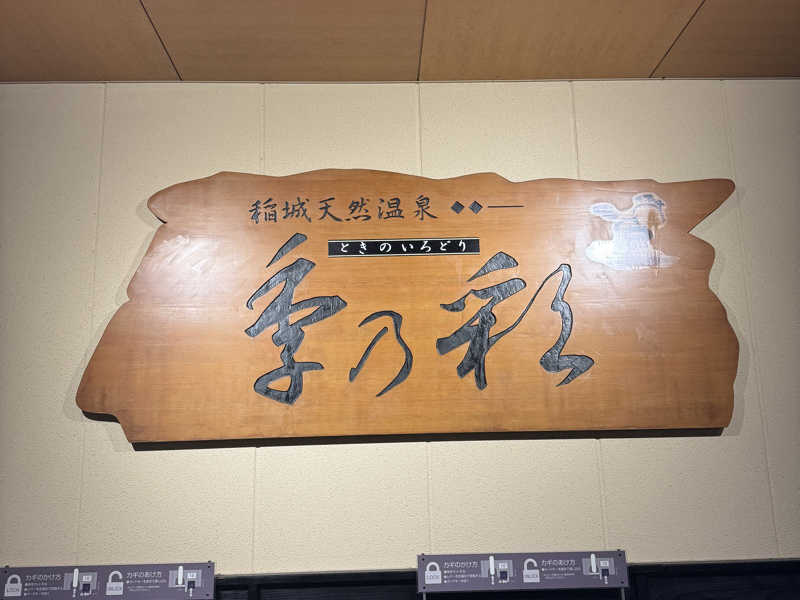 稲城天然温泉
ときのいろどり
季乃彩
カギのかけ方
LOCK
カギのあけ方
UNLOCK
カギのかけ方
LOCK
カギのあけ方
UNLOCK